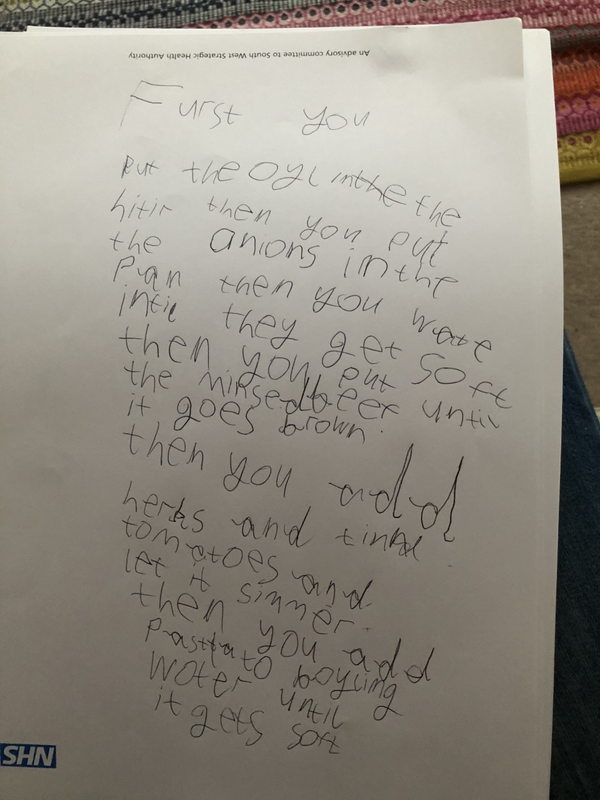 An advisory committee to South West Strategic Health Authority
Furst you
put the oyl inthe the
hitir then you put
the anions in the
Pan then you wate
intil they get soft
then you put
the minsedbeef until
it goes brown.
then you add
herbs and tinnd
tomatoes and
let it simmer.
then you add
Pasta to boyling
woter until
it gets soft
NHS